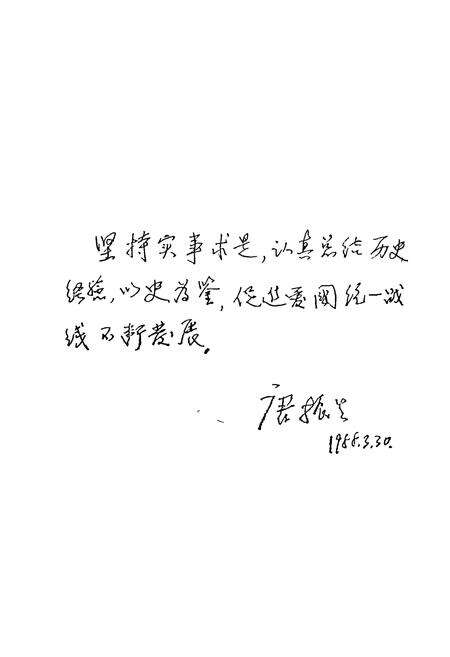 坚持实事求是,认真总结历史
经验,以史为鉴,促进爱国统一战
线不断发展.
唐振
1988.3.30.